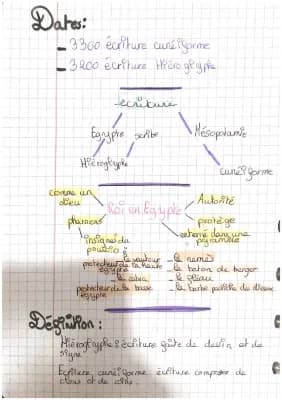 Dates:
- 3300 écriture cunéiforme
- 3200 écriture Hiéroglyphe
écriture
Egypte scribe Mésopotamie
Hiéroglyphe
cunéiforme
comme un dieu
Roi en Egypte
Autorité
pharaons
protège
enterré dans une pyramide
insigne du pouvoir
le vautour protecteur de la haute égypte
- le nemes
- le baton de berger
le cobra protecteur de la basse égypte
- le fléau
- la barbe postiche de dieux
Définition:
Hiéroglyphe: écriture faite de dessin et de signe
Ecriture cunéiforme écriture composer de clous et de